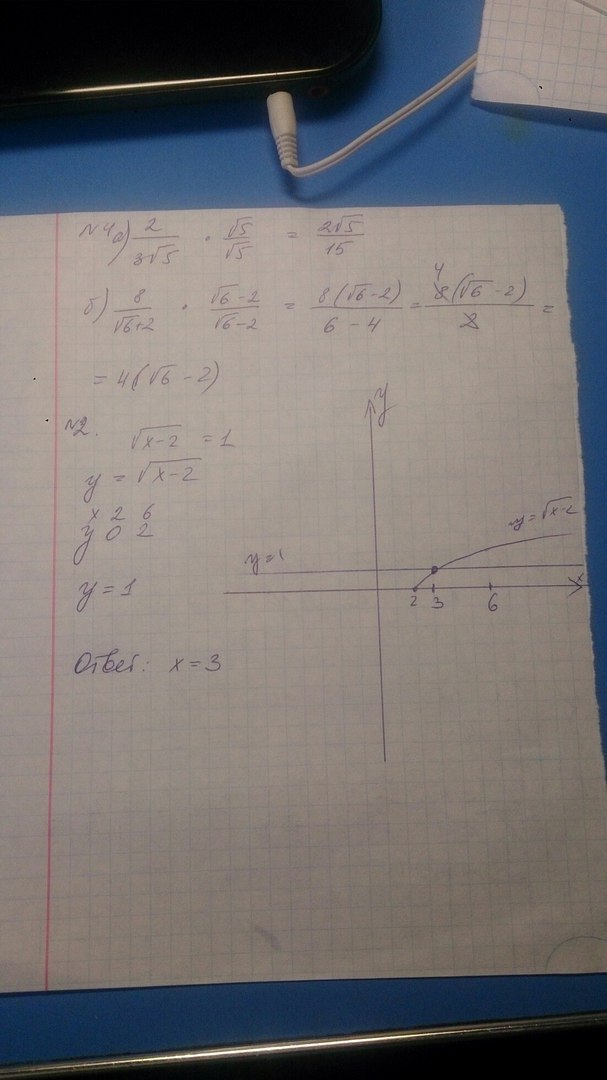 №4 а) 2/(3√5) · √5/√5 = 2√5/15
б) 8/(√6+2) · (√6-2)/(√6-2) = 8(√6-2)/(6-4) = 4 8(√6-2)/2 =
= 4(√6-2)
№2. √(x-2) = 1
y = √(x-2)
x 2 6
y 0 2
y = 1
Ответ: x = 3
y
y=√(x-2)
y=1
x
2 3 6